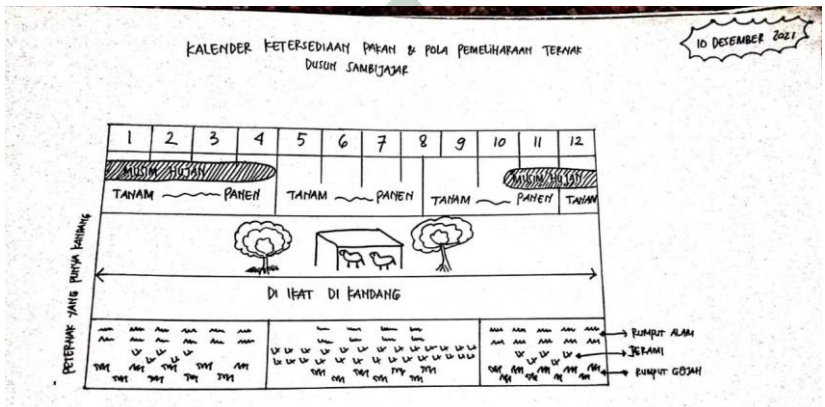 KALENDER KETERSEDIAAN PAKAN & POLA PEMELIHARAAN TERNAK
DUSUN SAMBIJAJAR
10 DESEMBER 2021
1 2 3 4 5 6 7 8 9 10 11 12
MUSIM HUJAN MUSIM HUJAN
TANAM PANEN TANAM PANEN TANAM PANEN TANAM
PETERNAK YANG PUNYA KANDANG
DI IKAT DI KANDANG
RUMPUT ALAM
JERAMI
RUMPUT GAJAH